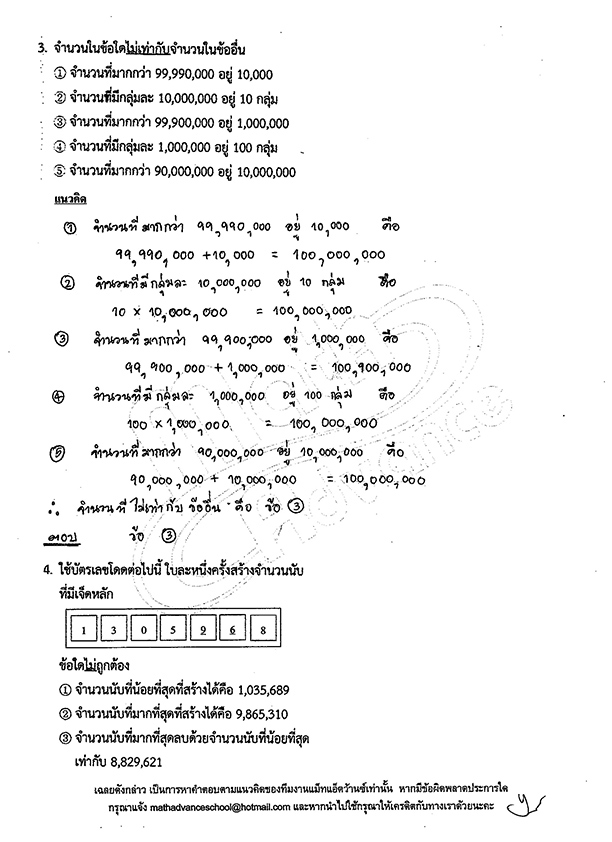 3. จำนวนในข้อใดไม่เท่ากับจำนวนในข้ออื่น
① จำนวนที่มากกว่า 99,990,000 อยู่ 10,000
② จำนวนที่มีกลุ่มละ 10,000,000 อยู่ 10 กลุ่ม
③ จำนวนที่มากกว่า 99,900,000 อยู่ 1,000,000
④ จำนวนที่มีกลุ่มละ 1,000,000 อยู่ 100 กลุ่ม
⑤ จำนวนที่มากกว่า 90,000,000 อยู่ 10,000,000
แนวคิด
① จำนวนที่มากกว่า 99,990,000 อยู่ 10,000 คือ
99,990,000 + 10,000 = 100,000,000
② จำนวนที่มีกลุ่มละ 10,000,000 อยู่ 10 กลุ่ม คือ
10 × 10,000,000 = 100,000,000
③ จำนวนที่มากกว่า 99,900,000 อยู่ 1,000,000 คือ
99,900,000 + 1,000,000 = 100,900,000
④ จำนวนที่มีกลุ่มละ 1,000,000 อยู่ 100 กลุ่ม คือ
100 × 1,000,000 = 100,000,000
⑤ จำนวนที่มากกว่า 90,000,000 อยู่ 10,000,000 คือ
90,000,000 + 10,000,000 = 100,000,000
∴ จำนวนที่ไม่เท่ากับข้ออื่น คือ ข้อ ③
ตอบ ข้อ ③
4. ใช้บัตรเลขโดดต่อไปนี้ ใบละหนึ่งครั้งสร้างจำนวนนับ
ที่มีเจ็ดหลัก
1 3 0 5 9 6 8
ข้อใดไม่ถูกต้อง
① จำนวนนับที่น้อยที่สุดที่สร้างได้คือ 1,035,689
② จำนวนนับที่มากที่สุดที่สร้างได้คือ 9,865,310
③ จำนวนนับที่มากที่สุดลบด้วยจำนวนนับที่น้อยที่สุด
เท่ากับ 8,829,621
เฉลยดังกล่าว เป็นการหาคำตอบตามแนวคิดของทีมงานแม็ทแอ็ดว้านซ์เท่านั้น หากมีข้อผิดพลาดประการใด
กรุณาแจ้ง mathadvanceschool@hotmail.com และหากนำไปใช้กรุณาให้เครดิตกับทางเราด้วยนะคะ
Math
Advance